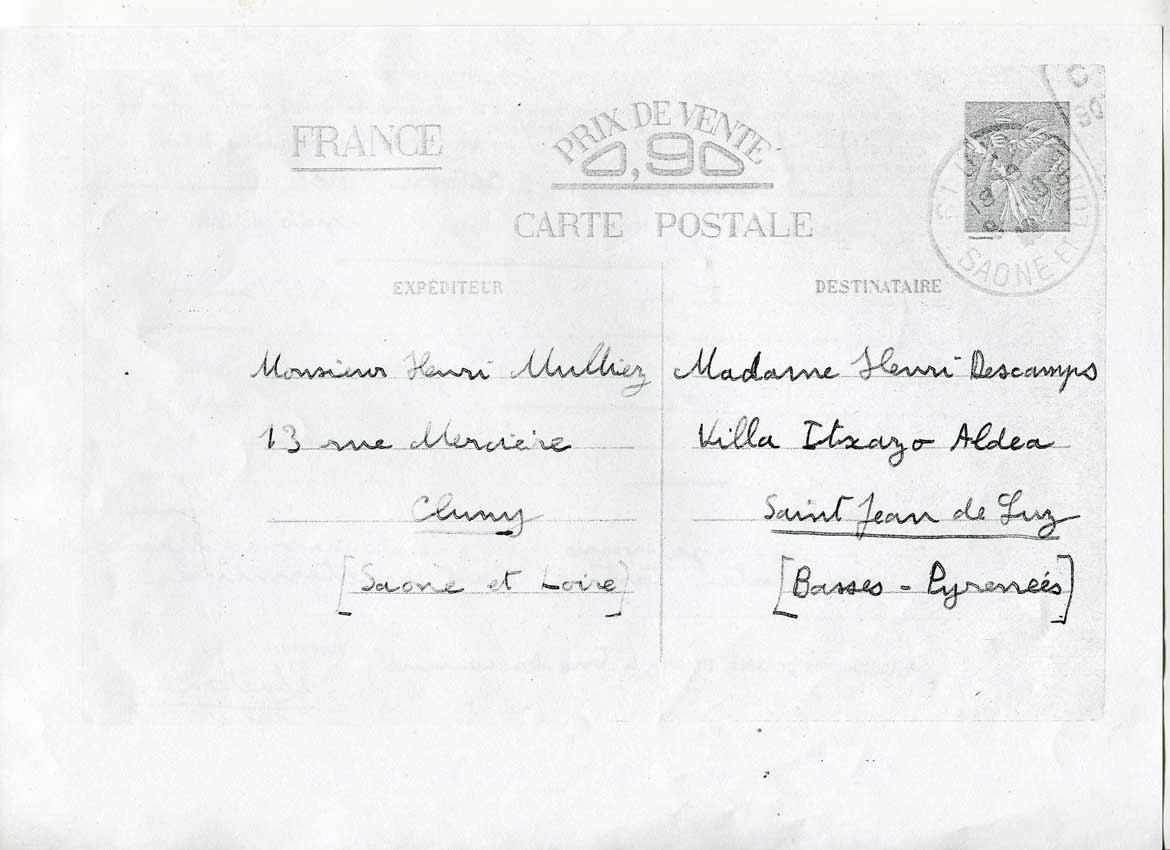 FRANCE
PRIX DE VENTE
0,90
CARTE POSTALE
SAONE ET
EXPÉDITEUR
Monsieur Henri Mulliez
13 rue Mercière
Cluny
[Saone et Loire]
DESTINATAIRE
Madame Henri Descamps
Villa Itxazo Aldea
Saint Jean de Luz
[Basses - Pyreneés]